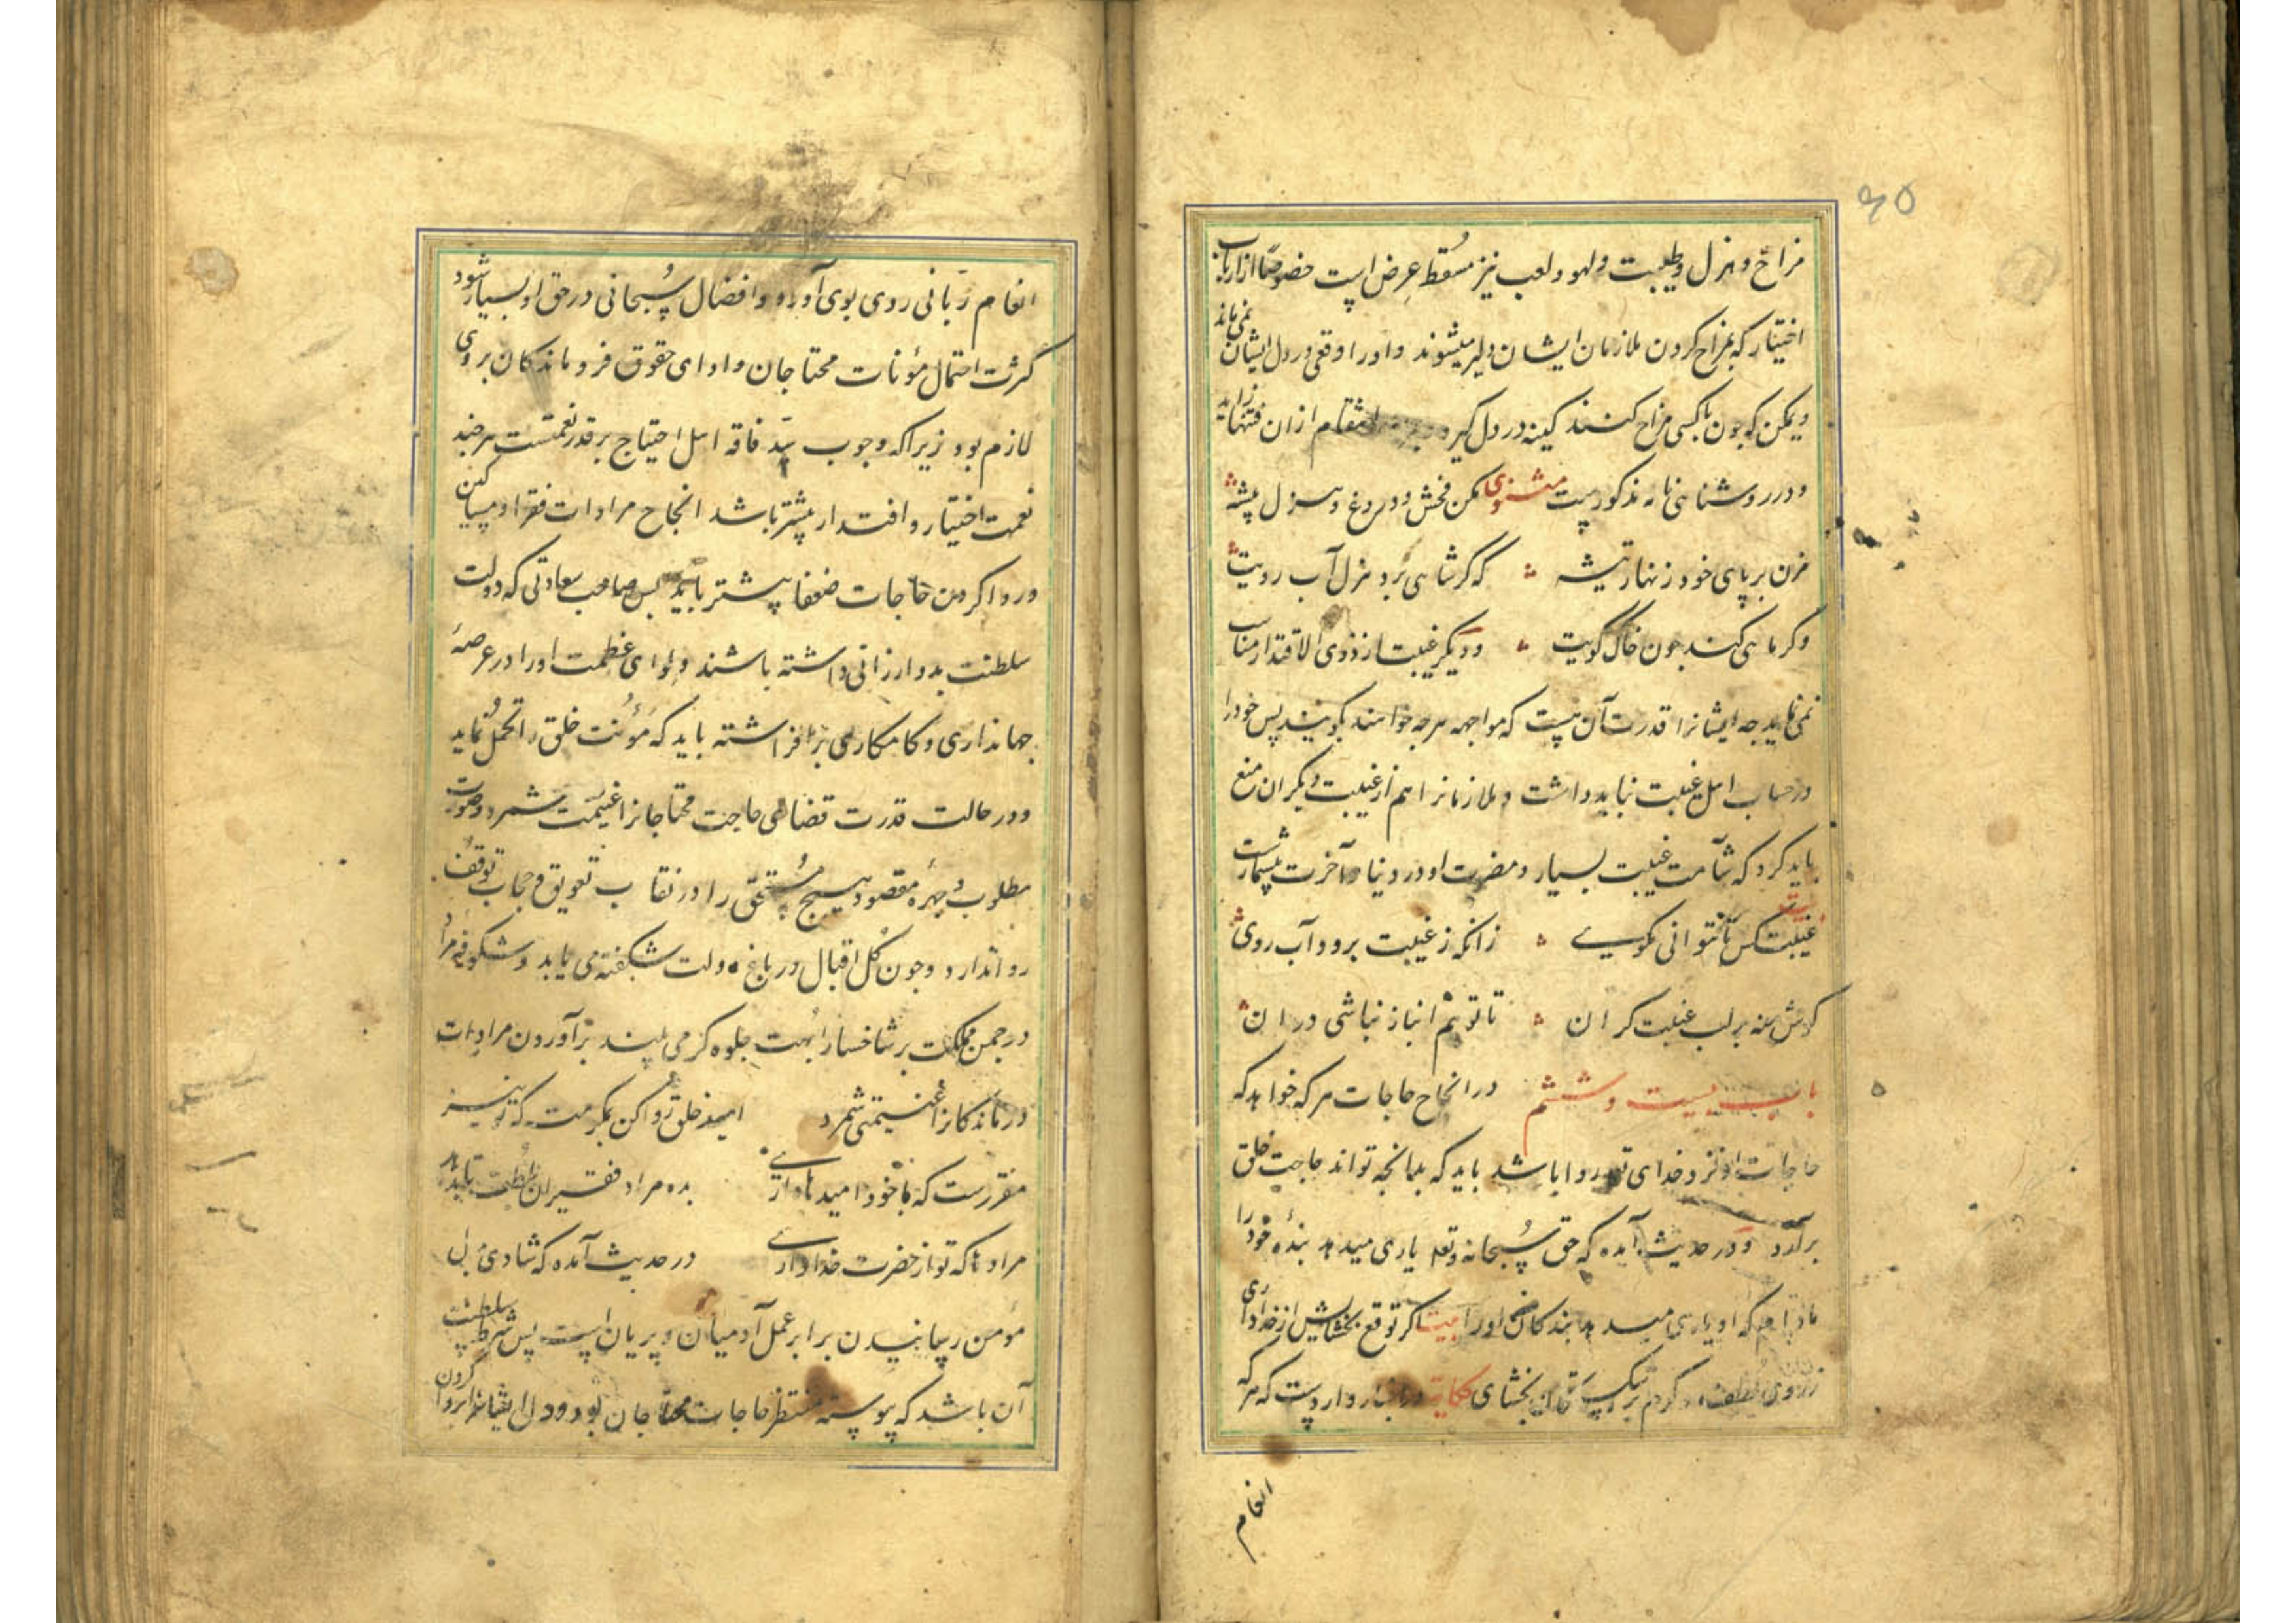 ۴۵
مزاح و هزل و طیبت و لهو و لعب نیز مسقط عرض است خصوصا از ارباب
اختیار که بمزاح کردن ملازمان ایشان دلیر میشوند و ادرا وقعی در دل ایشان نمی ماند
و یمکن که چون باکسی مزاح کنند کینه در دل گیرد و بجهة انتقام ازان فتنها زاید
و در روشنایی نامه مذکورست مثنوی مکن فحش و دروغ و هزل پیشه
مزن بر پای خود زنهار تیشه که گر شاهی برد هزل آب رویت
و گر ماهی کند چون خاک کویت و دیگر غیبت از ذوی الاقتدار مناسب
نمی نماید چه ایشانرا قدرت آن هست که مواجهه هرچه خواهند بگویند پس خود را
در حساب اهل غیبت نباید داشت و ملازمانرا هم از غیبت دیگران منع
باید کرد که شآمت غیبت بسیار و مضرت او در دنیا و آخرت بیشمارست
بیت
غیبت کس تا بتوانی مگوی زانکه ز غیبت برود آب روی
گوش منه بر لب غیبت گران تا تو هم انباز نباشی در ان
باب بیست و ششم در انجاح حاجات هرکه خواهد که
حاجات او نزد خدای تع روا باشد باید که بدانچه تواند حاجت خلق
برآرد و در حدیث آمده که حق سبحانه و تع یاری میدهد بندهٔ خود را
مادام که او یاری میدهد بندگان او را بیت اگر توقع بخشایش از خدا داری
ز روی لطف و کرم بر شکستگان بخشای حکایة در اخبار وارد ست که هر که
انعام
انعام ربانی روی بوی آورد و افضال سبحانی در حق او بسیار شود
کثرت احتمال مؤنات محتاجان و ادای حقوق فروماندگان بروی
لازم بود زیرا که وجوب سدّ فاقه اهل احتیاج بر قدر نعمتست هر چند
نعمت اختیار و اقتدار بیشتر باشد انجاح مرادات فقرا و مساکین
و روا کردن حاجات ضعفا بیشتر باید پس صاحب سعادتی که دولت
سلطنت بدو ارزانی داشته باشند و لوای عظمت او را در عرصهٔ
جهانداری و کامکاری برافراشته باید که مؤنت خلق را تحمل نماید
و در حالت قدرت قضای حاجت محتاجانرا غنیمت شمرد و صورت
مطلوب و چهرهٔ مقصود هیچ مستحق را در نقاب تعویق و حجاب توقف
روا ندارد و چون گل اقبال در باغ دولت شکفته می یابد و شکوفهٔ مراد
در چمن مملکت بر شاخسار ابهت جلوه گر می بیند برآوردن مرادات
درماندگانرا غنیمتی شمرد امید خلق روا کن بمکرمت که تو نیز
مقررست که با خود امیدها داری بده مراد فقیران بلطف تا بدهد
مرادها که تو از حضرت خدا داری در حدیث آمده که شادی بدل
مؤمن رسانیدن برابر عمل آدمیان و پریان است پس شرط سلطنت
آن باشد که پیوسته منتظر حاجات محتاجان بود و دل ایشانرا بروا کردن